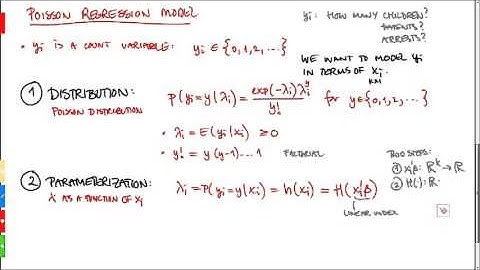 POISSON REGRESSION MODEL
yi: HOW MANY CHILDREN?
PATENTS?
ARRESTS?
• yi IS A COUNT VARIABLE: yi ∈ {0,1,2,...}
WE WANT TO MODEL yi
IN TERMS OF xi
K×1
① DISTRIBUTION:
POISSON DISTRIBUTION
P(yi=y|λi) = exp(-λi)λi^y / y! for y∈{0,1,2,...}
• λi = E(yi|xi) ≥0
• y! = y(y-1)...1 FACTORIAL
② PARAMETERIZATION:
λ AS A FUNCTION OF xi
λi = P(yi=y|xi) = h(xi) = H(xi'β)
LINEAR INDEX
TWO STEPS:
① xi'β: ℝ^k → ℝ
② H(·): ℝ